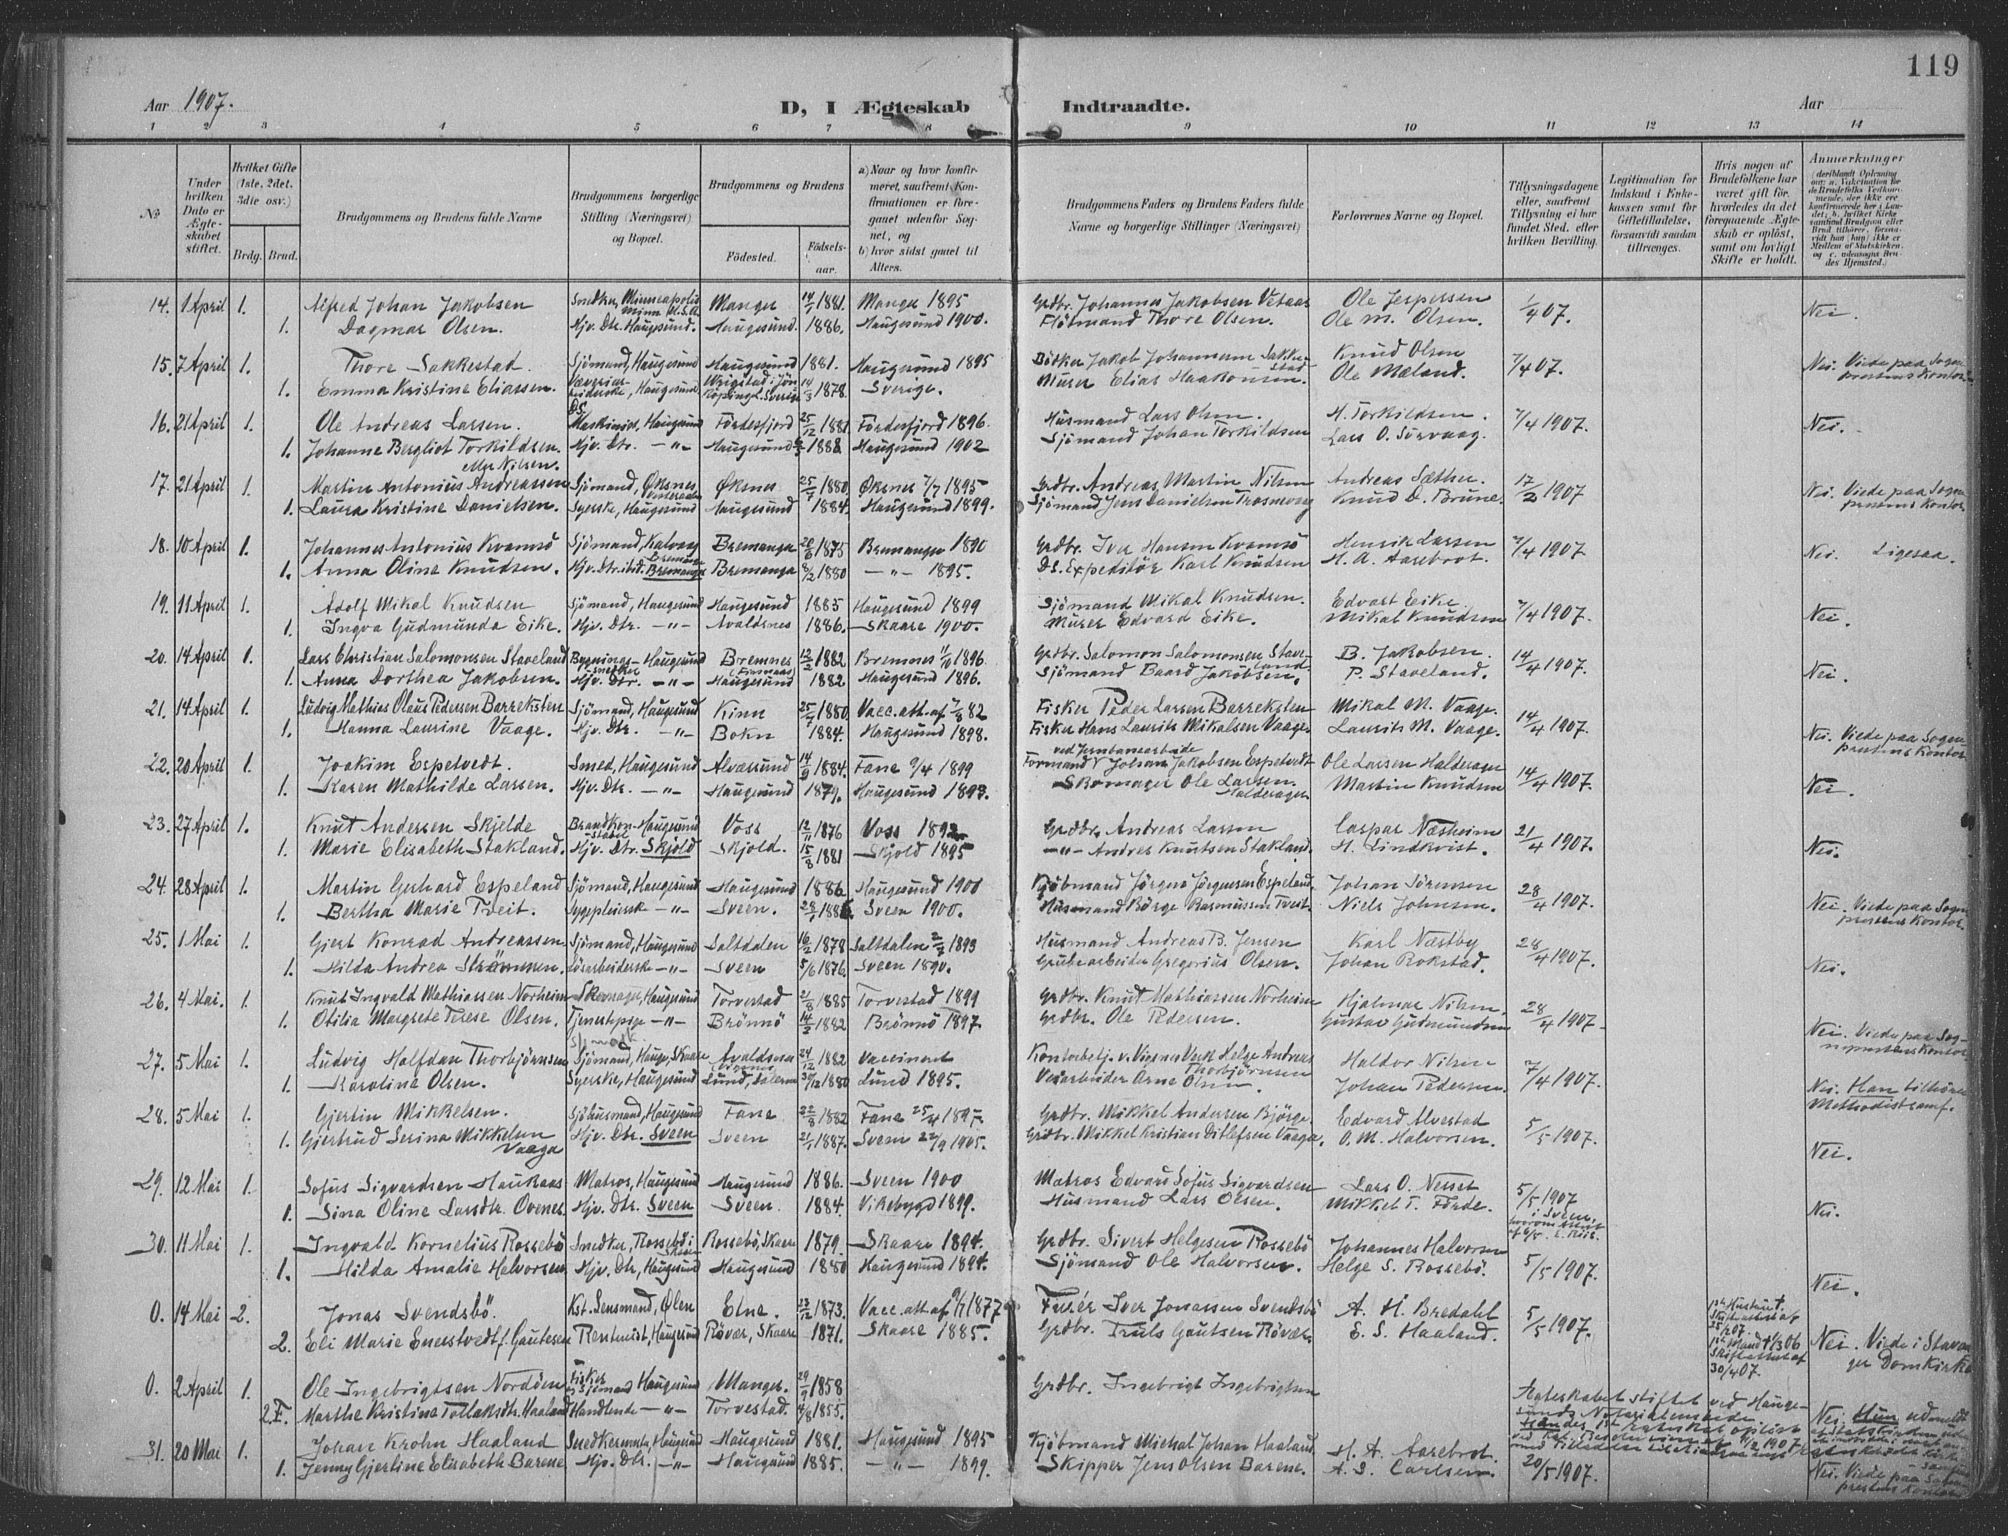 119
Aar 1907.
D, I Ægteskab Indtraadte.
Aar
1 2 3 4 5 6 7 8 9 10 11 12 13 14
No
Under hvilken Dato er Ægteskabet stiftet.
Hvilket Gifte (1ste, 2det, 3die osv.)
Brdg. Brud.
Brudgommens og Brudens fulde Navne
Brudgommens borgerlige Stilling (Næringsvei) og Bopæl.
Brudgommens og Brudens
Födested.
Födselsaar.
a) Naar og hvor konfirmeret, saafremt Konfirmationen er foregaaet udenfor Sognet, og
b) hvor sidst gaaet til Alters.
Brudgommens Faders og Brudens Faders fulde Navne og borgerlige Stillinger (Næringsvei)
Forlovernes Navne og Bopæl.
Tillysningsdagene eller, saafremt Tillysning ei har fundet Sted, efter hvilken Bevilling.
Legitimation for Indskud i Enkekassen samt for Giftetilladelse, forsaavidt saadan tiltrænges.
Hvis nogen af Brudefolkene har været gift før, hvorledes da det foregaaende Ægteskab er opløst, samt om lovligt Skifte er holdt.
Anmerkninger
14. 1 April 1. Alfred Johan Jakobsen Snedker, Minneapolis Minn. U.S.A. Manger 14/7 1881. Manger 1895 Grdbr. Johannes Jakobsen Vetaas Ole Jespersen 1/4 07. Nei.
1. Dagmar Olsen. Hjv. Dtr. Haugesund. Haugesund. 1886. Haugesund 1900. Flötmand Thore Olsen. Ole M. Olsen.
15. 7 April 1. Thore Sakkestad. Sjömand, Haugesund Haugesund 1881. Haugesund 1895 Bödker Jakob Johannesen Sakkestad Knud Olsen 7/4 07. Nei. Viede paa Sogneprestens Kontor
1. Emma Kristine Eliassen. Væveriarbeiderske, Haugesund Vrigstad i Jönköping L. Sverige 14/3 1878. Sverige. Murer Elias Haakonsen. Ole Mæland.
16. 21 April 1. Ole Andreas Larsen. DS. Maskinist, Haugesund Fördesfjord 25/12 1881 Fördesfjord 1896. Husmand Lars Olsen. H. Torkildsen. 7/4 1907. Nei.
1. Johanne Bergliot Torkildsen. Hjv. Dtr. -"- Haugesund 1888 Haugesund 1902 Sjömand Johan Torkildsen Lars O. Sörvaag.
17. 21 April 1. Martin Antonius Andreassen eller Nilsen. Sjömand, Øksnes Øksnes 25/7 1880 Øksnes 7/7 1895 Grdbr. Andreas Martin Nilsen Andreas Sæther. 17/2 1907 Nei. Viede paa Sogneprestens Kontor
1. Laura Kristine Danielsen. Syerske, Haugesund Haugesund 1884. Haugesund 1899. Sjömand Jens Danielsen Knud D. Brune.
18. 10 April 1. Johannes Antonius Kvamsö Sjömand, Kalvaag Bremanger Bremanger 20/6 1875 Bremanger 1890 Grdbr. Iver Hansen Kvamsö Henrik Larsen 7/4 1907 Nei. Ligesaa.
1. Anna Oline Knudsen. Hjv. Dtr. ibid. Bremanger Bremanger 8/2 1880 -"- 1895. D.S. Expeditör Karl Knudsen H. A. Aarebrot.
19. 11 April 1. Adolf Mikal Knudsen Sjömand, Haugesund Haugesund 1885 Haugesund 1899 Sjömand Mikal Knudsen. Edvart Eike 7/4 1907. Nei.
1. Ingva Gudmunda Eike. Hjv. Dtr. -"- Avaldsnes 1886. Skaare 1900. Murer Edvard Eike. Mikal Knudsen
20. 14 April 1. Lars Christian Salomonsen Staveland Bygningssnedker Haugesund Bremnes 12/2 1882 Bremnes 11/10 1896. Grdbr. Salomon Salomonsen Staveland B. Jakobsen. 14/4 1907. Nei.
1. Anna Dorthea Jakobsen. Hjv. Dtr. -"- Haugesund 1882 Haugesund 1896. Sjömand Baard Jakobsen. P. Staveland.
21. 14 April 1. Ludvig Mathias Olaus Pedersen Barreksten Sjömand, Haugesund Kinn 25/7 1880. Vacc. att. af 7/8 82 Fisker Peder Larsen Barreksten Mikal M. Vaage. 14/4 1907. Nei. Viede paa Sogneprestens Kontor
1. Hanna Laurine Vaage. Hjv. Dtr. -"- Bokn 1884. Haugesund 1898. Fisker Hans Laurits Mikalsen Vaage. Laurits M. Vaage.
22. 20 April 1. Joakim Espetvedt. Smed, Haugesund Alværsund 14/9 1884. Fane 9/4 1899 Formand ved Jernbanearbeide Johan Jakobsen Espetvedt Ole Larsen Halderager 14/4 1907. Nei.
1. Karen Mathilde Larsen. Hjv. Dtr. -"- Haugesund 1879. Haugesund 1893. Skomager Ole Larsen Halderager. Martin Knudsen
23. 27 April 1. Knut Andersen Skjelde Brandkonstabel Haugesund Voss 12/11 1876 Voss 1892 Grdbr. Andreas Larsen Caspar Næsheim 21/4 1907. Nei.
1. Marie Elisabeth Stakland. Hjv. Dtr. Skjold Skjold. 15/8 1881 Skjold 1895 -"- Andres Knutsen Stakland. H. Lindkvist.
24. 28 April 1. Martin Gerhard Espeland Sjömand, Haugesund Haugesund 1886 Haugesund 1900 Kjöbmand Jörgen Jörgensen Espeland. Johan Sörensen 28/4 1907. Nei. Viede paa Sogneprestens Kontor.
1. Bertha Marie Tveit. Sygepleierske -"- Sveen. Sveen 1900. Husmand Börge Rasmussen Tveit. Niels Johnsen.
25. 1 Mai 1. Gjert Konrad Andreassen Sjömand, Haugesund Saltdalen 16/2 1878 Saltdalen 1893 Husmand Andreas B. Jensen Karl Næstby 28/4 1907. Nei.
1. Hilda Andrea Strömmen. Lösarbeiderske -"- Sveen 5/6 1876. Sveen 1890. Grubearbeider Gregorius Olsen. Johan Rokstad.
26. 4 Mai. 1. Knut Ingvald Mathiassen Norheim Skomager, Haugesund Torvestad 21/8 1885 Torvestad 1899 Grdbr. Knut Mathiassen Norheim Hjalmar Nilsen, 28/4 1907. Nei. Viede paa Sogneprestens Kontor
1. Otilia Margrete Terese Olsen. Tjenestepige -"- Brönnö 14/2 1882 Brönnö 1897. Grdbr. Ole Pedersen. Gustav Gudmundsen
27. 5 Mai 1. Ludvig Halfdan Thorbjörnsen Sjömand, Hauge, Skaare Avaldsnes 24/12 1882 Vaccineret Kontorbetj. v. Vigsnes Verk Helge Andreas Thorbjörnsen Haldor Nilsen 7/4 1907. Nei. Han tilhörer Methodistsamf.
1. Karoline Olsen. Syerske, Haugesund Lund, Dalerne 30/12 1880 Lund 1895. Veiarbeider Arne Olsen. Johan Pedersen.
28. 5 Mai 1. Gjertin Mikkelsen. Sjöhusmand, Haugesund Fane 22/8 1882 Fane 25/4 1897. Grdbr. Mikkel Andersen Björge. Edvard Alvestad 5/5 1907. Nei.
1. Gjertrud Serina Mikkelsen Vaaga Hjv. Dtr. Sveen Sveen 21/1 1887. Sveen 22/9 1905. Grdbr. Mikkel Kristian Ditlefsen Vaaga. O. M. Halvorsen.
29. 12 Mai 1. Sofus Sigvardsen Haukaas Matros, Haugesund Haugesund 1886. Sveen 1900 Matros Edvard Sofus Sigvardsen Lars O. Nesset 5/5 1907 i Sveen, Nei.
1. Sina Oline Larsdtr. Ovenes Hjv. Dtr. Sveen Sveen. 1884. Vikebygd 1899. Husmand Lars Olsen. Mikkel T. Förde.
30. 11 Mai 1. Ingvald Kornelius Rossebö Snedker, Rossebö i Skaare Rossebö, Skaare 1879. Skaare 1894. Grdbr. Sivert Helgesen Rossebö Johannes Halvorsen 5/5 1907. Nei.
1. Hilda Amalie Halvorsen Hjv. Dtr, Haugesund Haugesund 1880 Haugesund 1894. Sjömand Ole Halvorsen. Helge S. Rossebö.
0. 14 Mai 2. Jonas Svendsbö. Kst. Lensmand, Ølen Etne. 23/12 1873. Vacc. att. af 9/7 1877 Furér Iver Jonassen Svendsbö A. H. Bredahl 5/5 1907. 1ste Hustru † Skifteattest af 25/2 07 Nei. Viede i Stavanger Domkirke
2. Eli Marie Enerstvedt f. Gautesen Rentenist, Haugesund Rövær, Skaare 1871. Skaare 1885. Grdbr. Truls Gautsen Rövær. E. S. Haaland. 1ste Mand † Skifteattest af 30/4 07.
0. 2 April 1. Ole Ingebrigtsen Nordöen Fisker og Sjömand Haugesund Manger. 29/9 1858 Grdbr. Ingebrigt Ingebrigtsen Ægteskabet stiftet ved Haugesunds Notarialembede
2. F. Marthe Kristine Tollaksdtr. Haaland Handlende -"- Torvestad. 4/8 1855. Nei. Hun udmeldt af Statskirken
31. 20 Mai 1. Johan Krohn Haaland Snedkermester, Haugesund Haugesund 1881. Haugesund 1895 Kjöbmand Michal Johan Haaland H. A. Aarebrot. 20/5 1907. Nei. Viede paa Sogneprestens Kontor
1. Jenny Gjertine Elisabeth Barene. Hjv. Dtr. -"- Haugesund 1885. -"- 1899. Skipper Jens Olsen Barene. A. S. Carlsen.